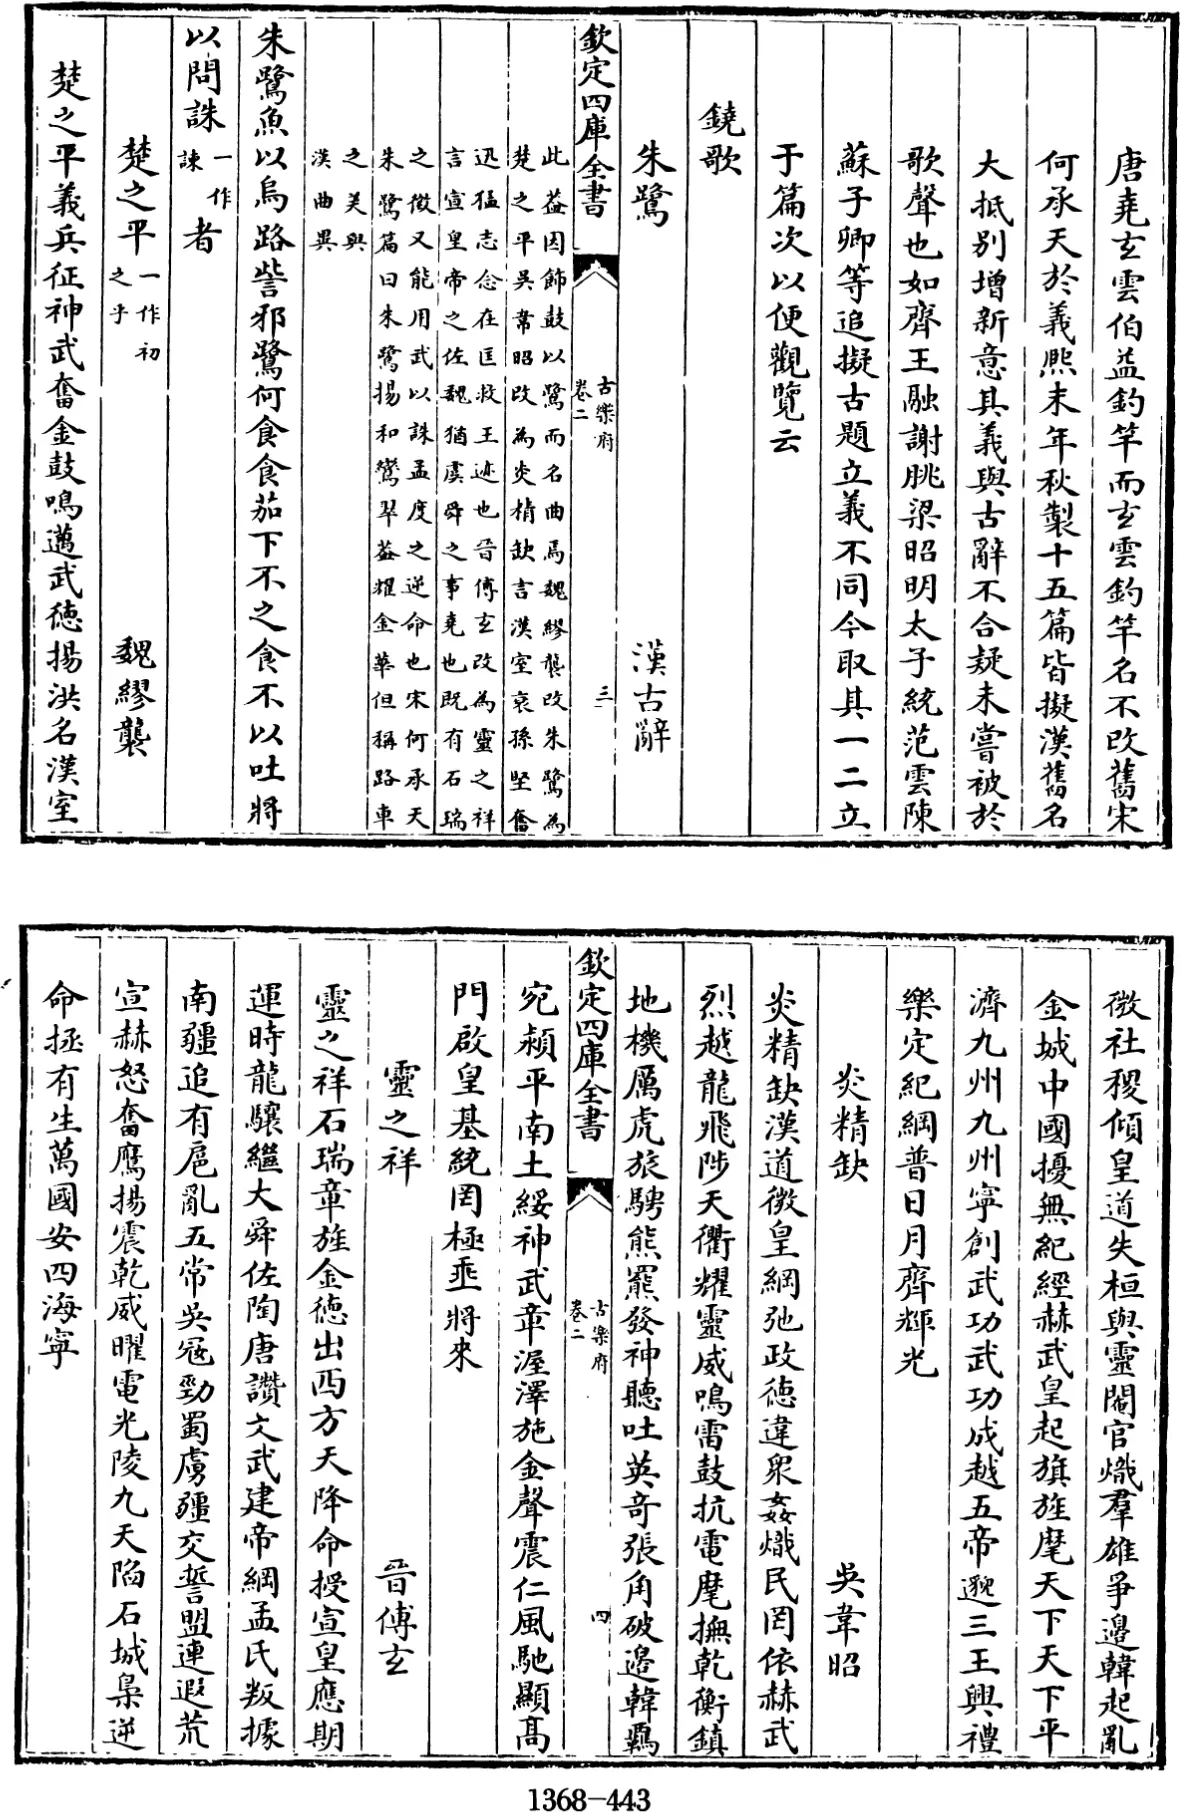 唐堯玄雲伯益釣竿而玄雲釣竿名不改舊宋
何承天於義熙末年秋製十五篇皆擬漢舊名
大抵別增新意其義與古辭不合疑未嘗被於
歌聲也如齊王融謝朓梁昭明太子統范雲陳
蘇子卿等追擬古題立義不同今取其一二立
于篇次以便觀覽云
鐃歌
朱鷺　漢古辭
欽定四庫全書　古樂府卷二　三
此葢因飾鼓以鷺而名曲焉魏繆襲改朱鷺為
楚之平吳韋昭改為炎精缺言漢室衰孫堅奮
迅猛志念在匡救王迹也晉傅玄改為靈之祥
言宣皇帝之佐魏猶虞舜之事堯也既有石瑞
之徵又能用武以誅孟度之逆命也宋何承天
朱鷺篇曰朱鷺揚和鸞翠葢耀金華但稱路車
之美與
漢曲異
朱鷺魚以烏路訾邪鷺何食食茄下不之食不以吐將
以問誅一作諫者
楚之平一作初之乎　魏繆襲
楚之平義兵征神武奮金鼓鳴邁武德揚洪名漢室
微社稷傾皇道失桓與靈閹官熾羣雄爭邉韓起亂
金城中國擾無紀經赫武皇起旗旌麾天下天下平
濟九州九州寧創武功武功成越五帝邈三王興禮
樂定紀綱普日月齊輝光
炎精缺　吳韋昭
炎精缺漢道微皇綱弛政德違衆姦熾民罔依赫武
烈越龍飛陟天衢耀靈威鳴雷鼓抗電麾撫乾衡鎮
地機厲虎旅騁熊羆發神聽吐英奇張角破邉韓羈
欽定四庫全書　古樂府卷二　四
宛潁平南土綏神武章渥澤施金聲震仁風馳顯髙
門啟皇基統罔極垂將來
靈之祥　晉傅玄
靈之祥石瑞章旌金德出西方天降命授宣皇應期
運時龍驤繼大舜佐陶唐讚文武建帝綱孟氏叛據
南疆追有扈亂五常吳寇勁蜀虜疆交誓盟連遐荒
宣赫怒奮鷹揚震乾威曜電光陵九天陷石城梟逆
命拯有生萬國安四海寧
1368-443